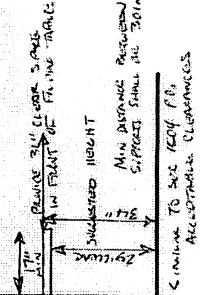 17"
MIN
PROVIDE 34" CLEAR SPACE
IN FRONT OF TABLE
34"
SUGGESTED HEIGHT
MIN DISTANCE BETWEEN
SUPPORTS SHALL BE 30"
SIMILAR TO SEC
ACCEPTABLE CLEARANCES